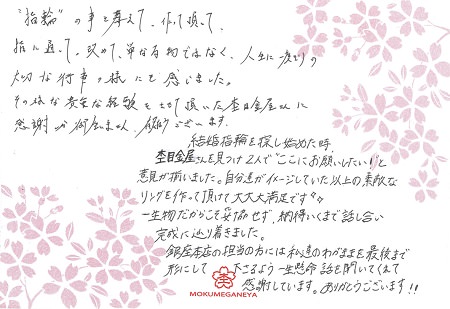 "指輪"の事を考えて、作って頂いて、
指に通して、改めて、単なる物ではなく、人生に一度きりの
大切な行事の様にも感じました。
その様な貴重な経験をさせて頂いた杢目金屋さんに
感謝が尽きません。
結婚指輪を探し始めた時、
杢目金屋さんを見つけ2人で"ここにお願いしたい!"と
意見が揃いました。自分達がイメージしていた以上の素敵な
リングを作って頂けて大大大満足です
一生物だからこそ妥協せず、納得いくまで話し合い
完成に辿り着きました。
銀座本店の担当の方には私達のわがままを最後まで
形にして下さるよう一生懸命話を聞いてくれて
感謝しています。ありがとうございます!!
MOKUMEGANEYA